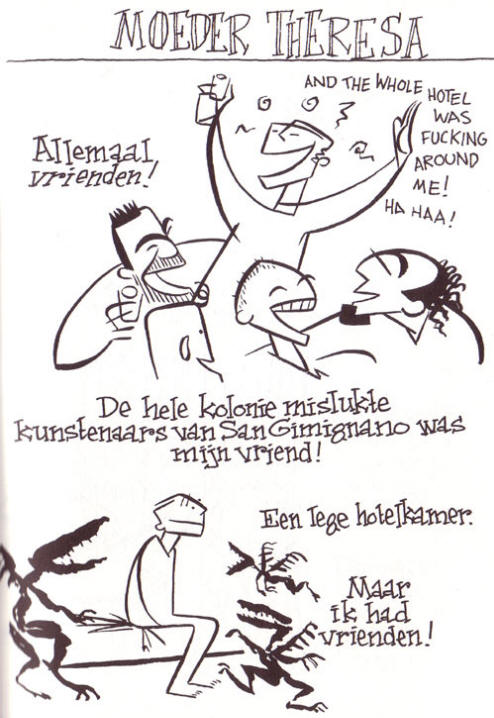 MOEDER THERESA
AND THE WHOLE
HOTEL
WAS
FUCKING
AROUND
ME!
HA HAA!
Allemaal
vrienden!
De hele kolonie mislukte
kunstenaars van San Gimignano was
mijn vriend!
Een lege hotelkamer.
Maar
ik had
vrienden!